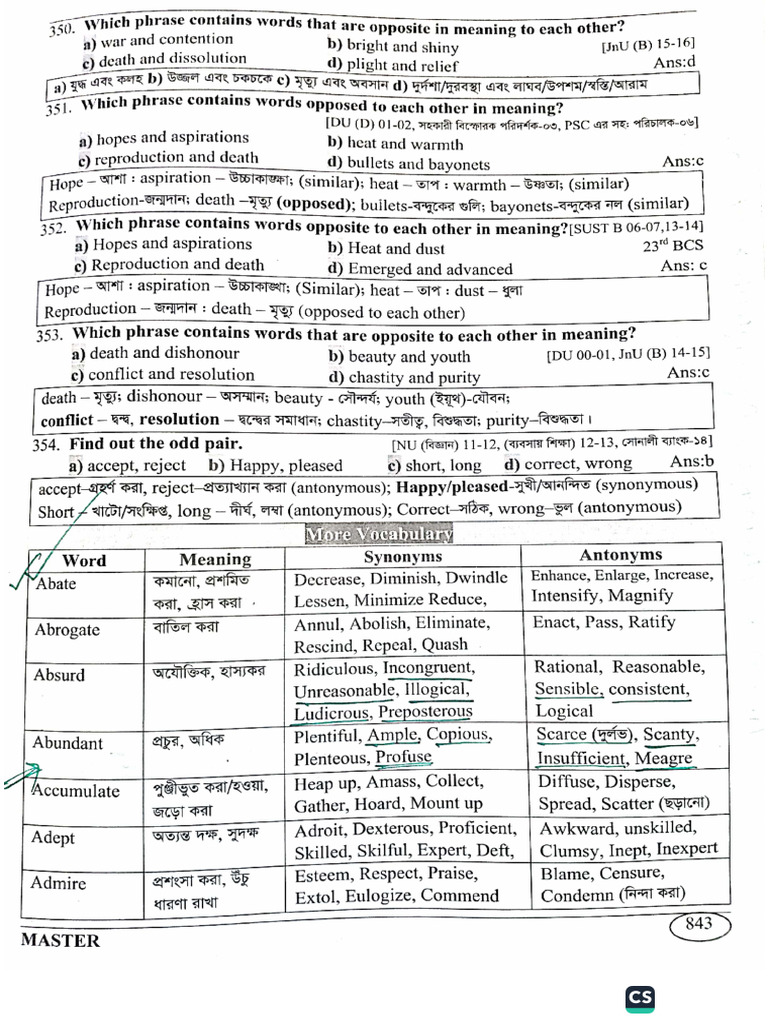 350. Which phrase contains words that are opposite in meaning to each other?
a) war and contention b) bright and shiny [JnU (B) 15-16]
c) death and dissolution d) plight and relief Ans:d
a) যুদ্ধ এবং কলহ b) উজ্জল এবং চকচকে c) মৃত্যু এবং অবসান d) দুর্দশা/দুরবস্থা এবং লাঘব/উপশম/স্বস্তি/আরাম
351. Which phrase contains words opposed to each other in meaning?
[DU (D) 01-02, সহকারী বিস্ফোরক পরিদর্শক-০৩, PSC এর সহঃ পরিচালক-০৬]
a) hopes and aspirations b) heat and warmth
c) reproduction and death d) bullets and bayonets Ans:c
Hope – আশা : aspiration – উচ্চাকাঙ্ক্ষা; (similar); heat – তাপ : warmth – উষ্ণতা; (similar)
Reproduction-জন্মদান; death –মৃত্যু (opposed); bullets-বন্দুকের গুলি; bayonets-বন্দুকের নল (similar)
352. Which phrase contains words opposite to each other in meaning?[SUST B 06-07,13-14]
a) Hopes and aspirations b) Heat and dust 23rd BCS
c) Reproduction and death d) Emerged and advanced Ans: c
Hope – আশা : aspiration – উচ্চাকাঙ্খা; (Similar); heat – তাপ : dust – ধুলা
Reproduction – জন্মদান : death – মৃত্যু (opposed to each other)
353. Which phrase contains words that are opposite to each other in meaning?
a) death and dishonour b) beauty and youth [DU 00-01, JnU (B) 14-15]
c) conflict and resolution d) chastity and purity Ans:c
death – মৃত্যু; dishonour – অসম্মান; beauty - সৌন্দর্য; youth (ইয়ূথ)-যৌবন;
conflict – দ্বন্দ্ব, resolution – দ্বন্দ্বের সমাধান; chastity–সতীত্ব, বিশুদ্ধতা; purity–বিশুদ্ধতা।
354. Find out the odd pair. [NU (বিজ্ঞান) 11-12, (ব্যবসায় শিক্ষা) 12-13, সোনালী ব্যাংক-১৪]
a) accept, reject b) Happy, pleased c) short, long d) correct, wrong Ans:b
accept–গ্রহণ করা, reject–প্রত্যাখ্যান করা (antonymous); Happy/pleased-সুখী/আনন্দিত (synonymous)
Short – খাটো/সংক্ষিপ্ত, long – দীর্ঘ, লম্বা (antonymous); Correct–সঠিক, wrong–ভুল (antonymous)
More Vocabulary
Word Meaning Synonyms Antonyms
Abate কমানো, প্রশমিত Decrease, Diminish, Dwindle Enhance, Enlarge, Increase,
করা, হ্রাস করা Lessen, Minimize Reduce, Intensify, Magnify
Abrogate বাতিল করা Annul, Abolish, Eliminate, Enact, Pass, Ratify
Rescind, Repeal, Quash
Absurd অযৌক্তিক, হাস্যকর Ridiculous, Incongruent, Rational, Reasonable,
Unreasonable, Illogical, Sensible, consistent,
Ludicrous, Preposterous Logical
Abundant প্রচুর, অধিক Plentiful, Ample, Copious, Scarce (দুর্লভ), Scanty,
Plenteous, Profuse Insufficient, Meagre
Accumulate পুঞ্জীভূত করা/হওয়া, Heap up, Amass, Collect, Diffuse, Disperse,
জড়ো করা Gather, Hoard, Mount up Spread, Scatter (ছড়ানো)
Adept অত্যন্ত দক্ষ, সুদক্ষ Adroit, Dexterous, Proficient, Awkward, unskilled,
Skilled, Skilful, Expert, Deft, Clumsy, Inept, Inexpert
Admire প্রশংসা করা, উঁচু Esteem, Respect, Praise, Blame, Censure,
ধারণা রাখা Extol, Eulogize, Commend Condemn (নিন্দা করা)
MASTER 843
CS